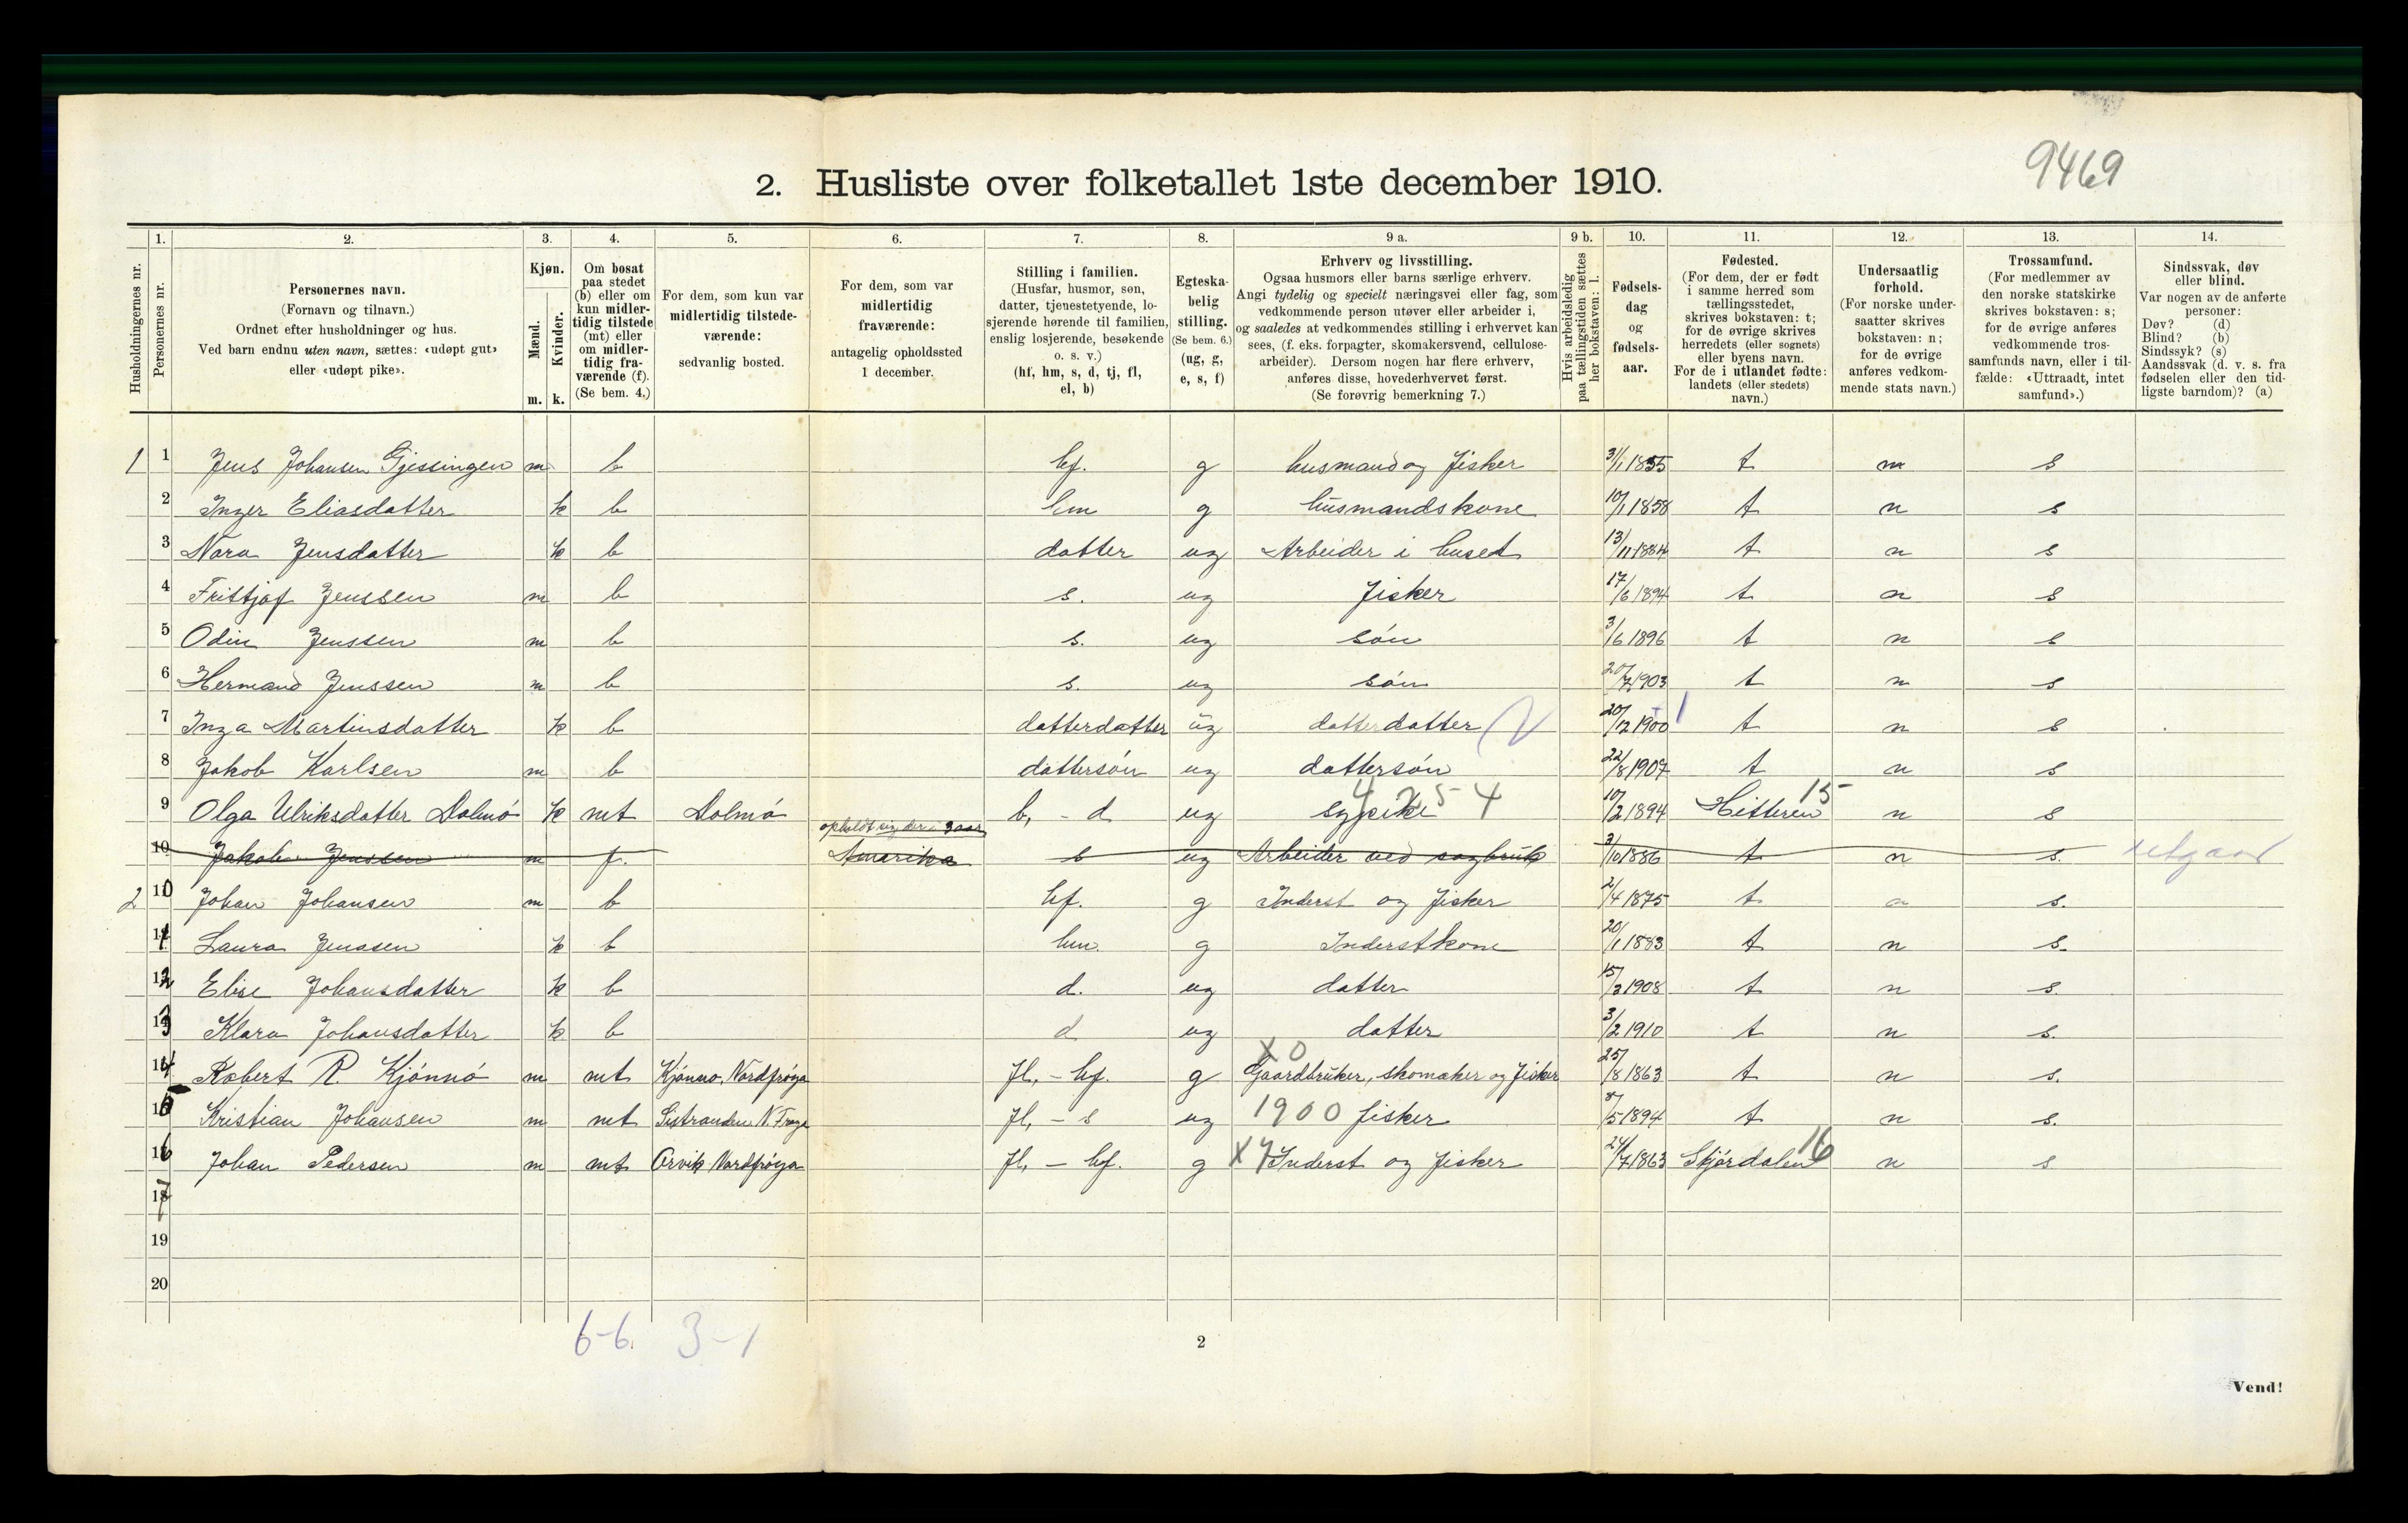 9469
2. Husliste over folketallet 1ste december 1910.
1. 2. 3. 4. 5. 6. 7. 8. 9 a. 9 b. 10. 11. 12. 13. 14.
Husholdningernes nr.
Personernes nr.
Personernes navn.
(Fornavn og tilnavn.)
Ordnet efter husholdninger og hus.
Ved barn endnu uten navn, sættes: «udøpt gut»
eller «udøpt pike».
Kjøn.
Mænd.
Kvinder.
m. k.
Om bosat
paa stedet
(b) eller om
kun midler-
tidig tilstede
(mt) eller
om midler-
tidig fra-
værende (f).
(Se bem. 4.)
For dem, som kun var
midlertidig tilstede-
værende:
sedvanlig bosted.
For dem, som var
midlertidig
fraværende:
antagelig opholdssted
1 december.
Stilling i familien.
(Husfar, husmor, søn,
datter, tjenestetyende, lo-
sjerende hørende til familien,
enslig losjerende, besøkende
o. s. v.)
(hf, hm, s, d, tj, fl,
el, b)
Egteska-
belig
stilling.
(Se bem. 6.)
(ug, g,
e, s, f)
Erhverv og livsstilling.
Ogsaa husmors eller barns særlige erhverv.
Angi tydelig og specielt næringsvei eller fag, som
vedkommende person utøver eller arbeider i,
og saaledes at vedkommendes stilling i erhvervet kan
sees, (f. eks. forpagter, skomakersvend, cellulose-
arbeider). Dersom nogen har flere erhverv,
anføres disse, hovederhvervet først.
(Se forøvrig bemerkning 7.)
Hvis arbeidsledig
paa tællingstiden sættes
her bokstaven: l.
Fødsels-
dag
og
fødsels-
aar.
Fødested.
(For dem, der er født
i samme herred som
tællingsstedet,
skrives bokstaven: t;
for de øvrige skrives
herredets (eller sognets)
eller byens navn.
For de i utlandet fødte:
landets (eller stedets)
navn.)
Undersaatlig
forhold.
(For norske under-
saatter skrives
bokstaven: n;
for de øvrige
anføres vedkom-
mende stats navn.)
Trossamfund.
(For medlemmer av
den norske statskirke
skrives bokstaven: s;
for de øvrige anføres
vedkommende tros-
samfunds navn, eller i til-
fælde: «Uttraadt, intet
samfund».)
Sindssvak, døv
eller blind.
Var nogen av de anførte
personer:
Døv? (d)
Blind? (b)
Sindssyk? (s)
Aandssvak (d. v. s. fra
fødselen eller den tid-
ligste barndom)? (a)
1 1 Jens Johansen Gjessingen m b hf. g husmand og fisker 31/1 1855 t n s
2 Inger Eliasdatter k b hm g husmandskone 10/1 1858 t n s
3 Nora Jensdatter k b datter ug Arbeider i huset 13/11 1884 t n s
4 Fritjof Jenssen m b s. ug fisker 17/6 1894 t n s
5 Odin Jenssen m b s. ug søn 3/6 1896 t n s
6 Hermand Jenssen m b s. ug søn 20/7 1903 t n s
7 Inga Martinsdatter k b datterdatter ug datterdatter 20/12 1900 1 t n s
8 Jakob Karlsen m b dattersøn ug dattersøn 22/8 1907 t n s
9 Olga Ulriksdatter Dolmø k mt Dolmø b, - d ug sypike 4 10/2 1894 Hitteren 15 n s
10 Jakob Jenssen m f. opholdt sig der i 3 aar Amerika s ug Arbeider ved sagbruk 3/10 1886 t n s. utgaar
2 10 Johan Johansen m b hf. g Inderst og fisker 2/4 1875 t n s.
11 Laura Jenssen k b hm. g Inderstkone 20/1 1883 t n s.
12 Elise Johansdatter k b d. ug datter 15/3 1908 t n s.
13 Klara Johansdatter k b d ug datter 3/2 1910 t n s.
14 Robert R. Kjønnø m mt Kjønnø, Nordfrøya fl, - hf. g X0 Gaardbruker, skomaker og fisker 25/8 1863 t n s.
15 Kristian Johansen m mt Sistranden N. Frøya fl, - s ug 1900 fisker 8/5 1894 t n s.
16 Johan Pedersen m mtØrvik Nordfrøya fl, - hf. g X7 Inderst og fisker 24/7 1863 Skjørdalen 16 n s
17
19
20
6-6. 3-1
2
Vend!